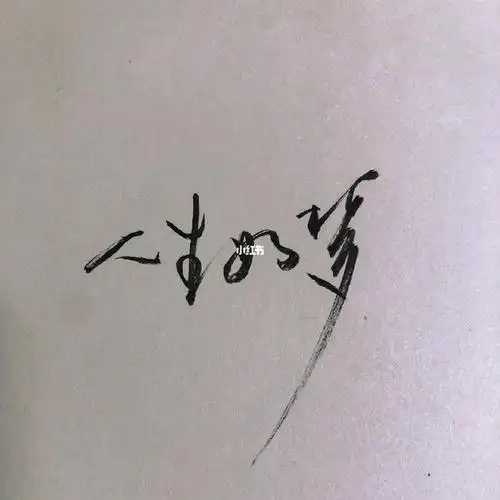 人生如梦
小红书